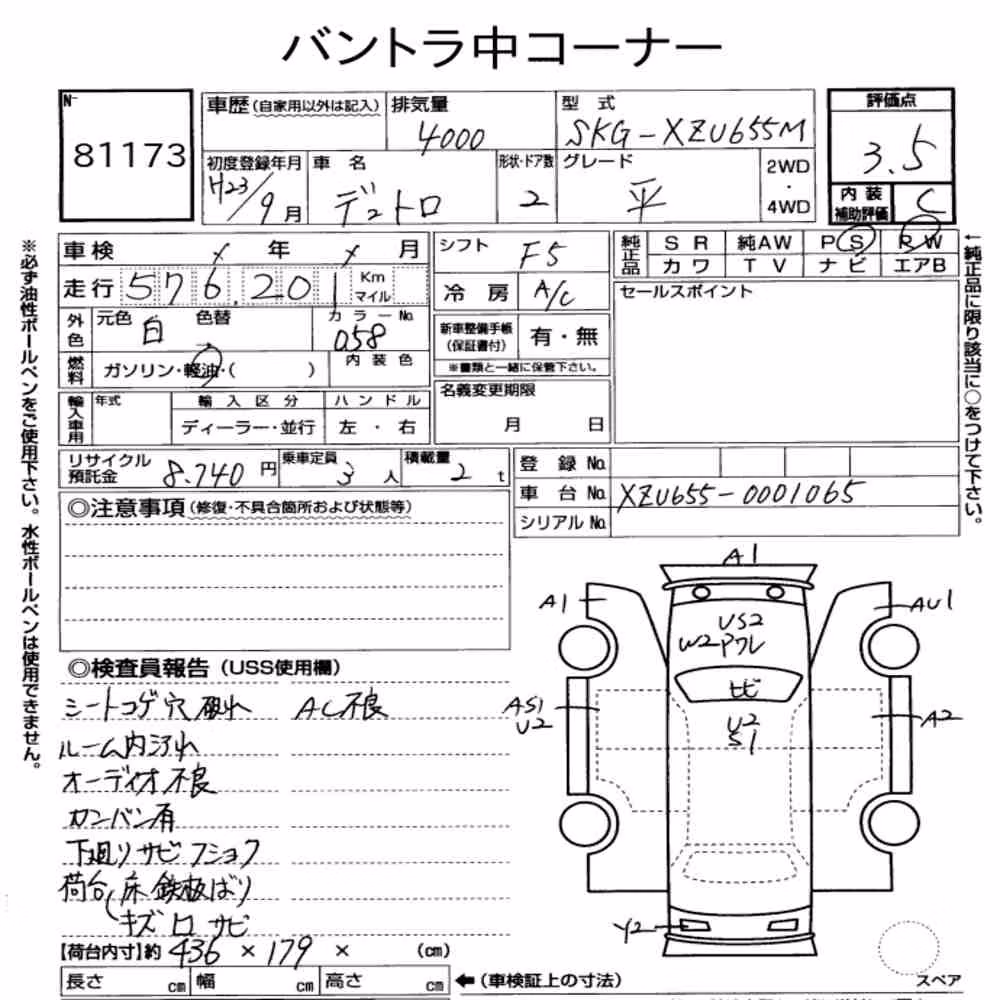 バントラ中コーナー
N-
81173
車歴(自家用以外は記入)
排気量
4000
型 式
SKG-XZU655M
評価点
3.5
内装
補助評価
C
初度登録年月
H23/9月
車 名
デュトロ
形状・ドア数
2
グレード
平
2WD
・
4WD
車検 × 年 × 月
走行 576,201 Km
マイル
外色
元色 白 色替
カラーNo.
058
燃料
ガソリン・軽油・( )
内装色
輸入車用
年式
輸入区分
ディーラー・並行
ハンドル
左・右
シフト
F5
冷房
A/C
新車整備手帳
(保証書付)
有・無
※書類と一緒に保管下さい。
名義変更期限
月 日
純正品
SR 純AW PS PW
カワ TV ナビ エアB
セールスポイント
リサイクル
預託金
8.740円
乗車定員
3人
積載量
2t
登録No.
車台No. XZU655-0001065
シリアルNo.
◎注意事項(修復・不具合箇所および状態等)
◎検査員報告(USS使用欄)
シートコゲ穴破れ AC不良
ルーム内汚れ
オーディオ不良
カンバン有
下廻りサビフショク
荷台(床鉄板ばり
キズ凹サビ
【荷台内寸】約 436 × 179 × (cm)
長さ cm 幅 cm 高さ cm
←(車検証上の寸法)
※必ず油性ボールペンをご使用下さい。水性ボールペンは使用できません。
←純正品に限り該当に○をつけて下さい。
A1
A1
AU1
US2
W2Pクレ
ヒビ
AS1
U2
U2
S1
A2
Y2
スペア